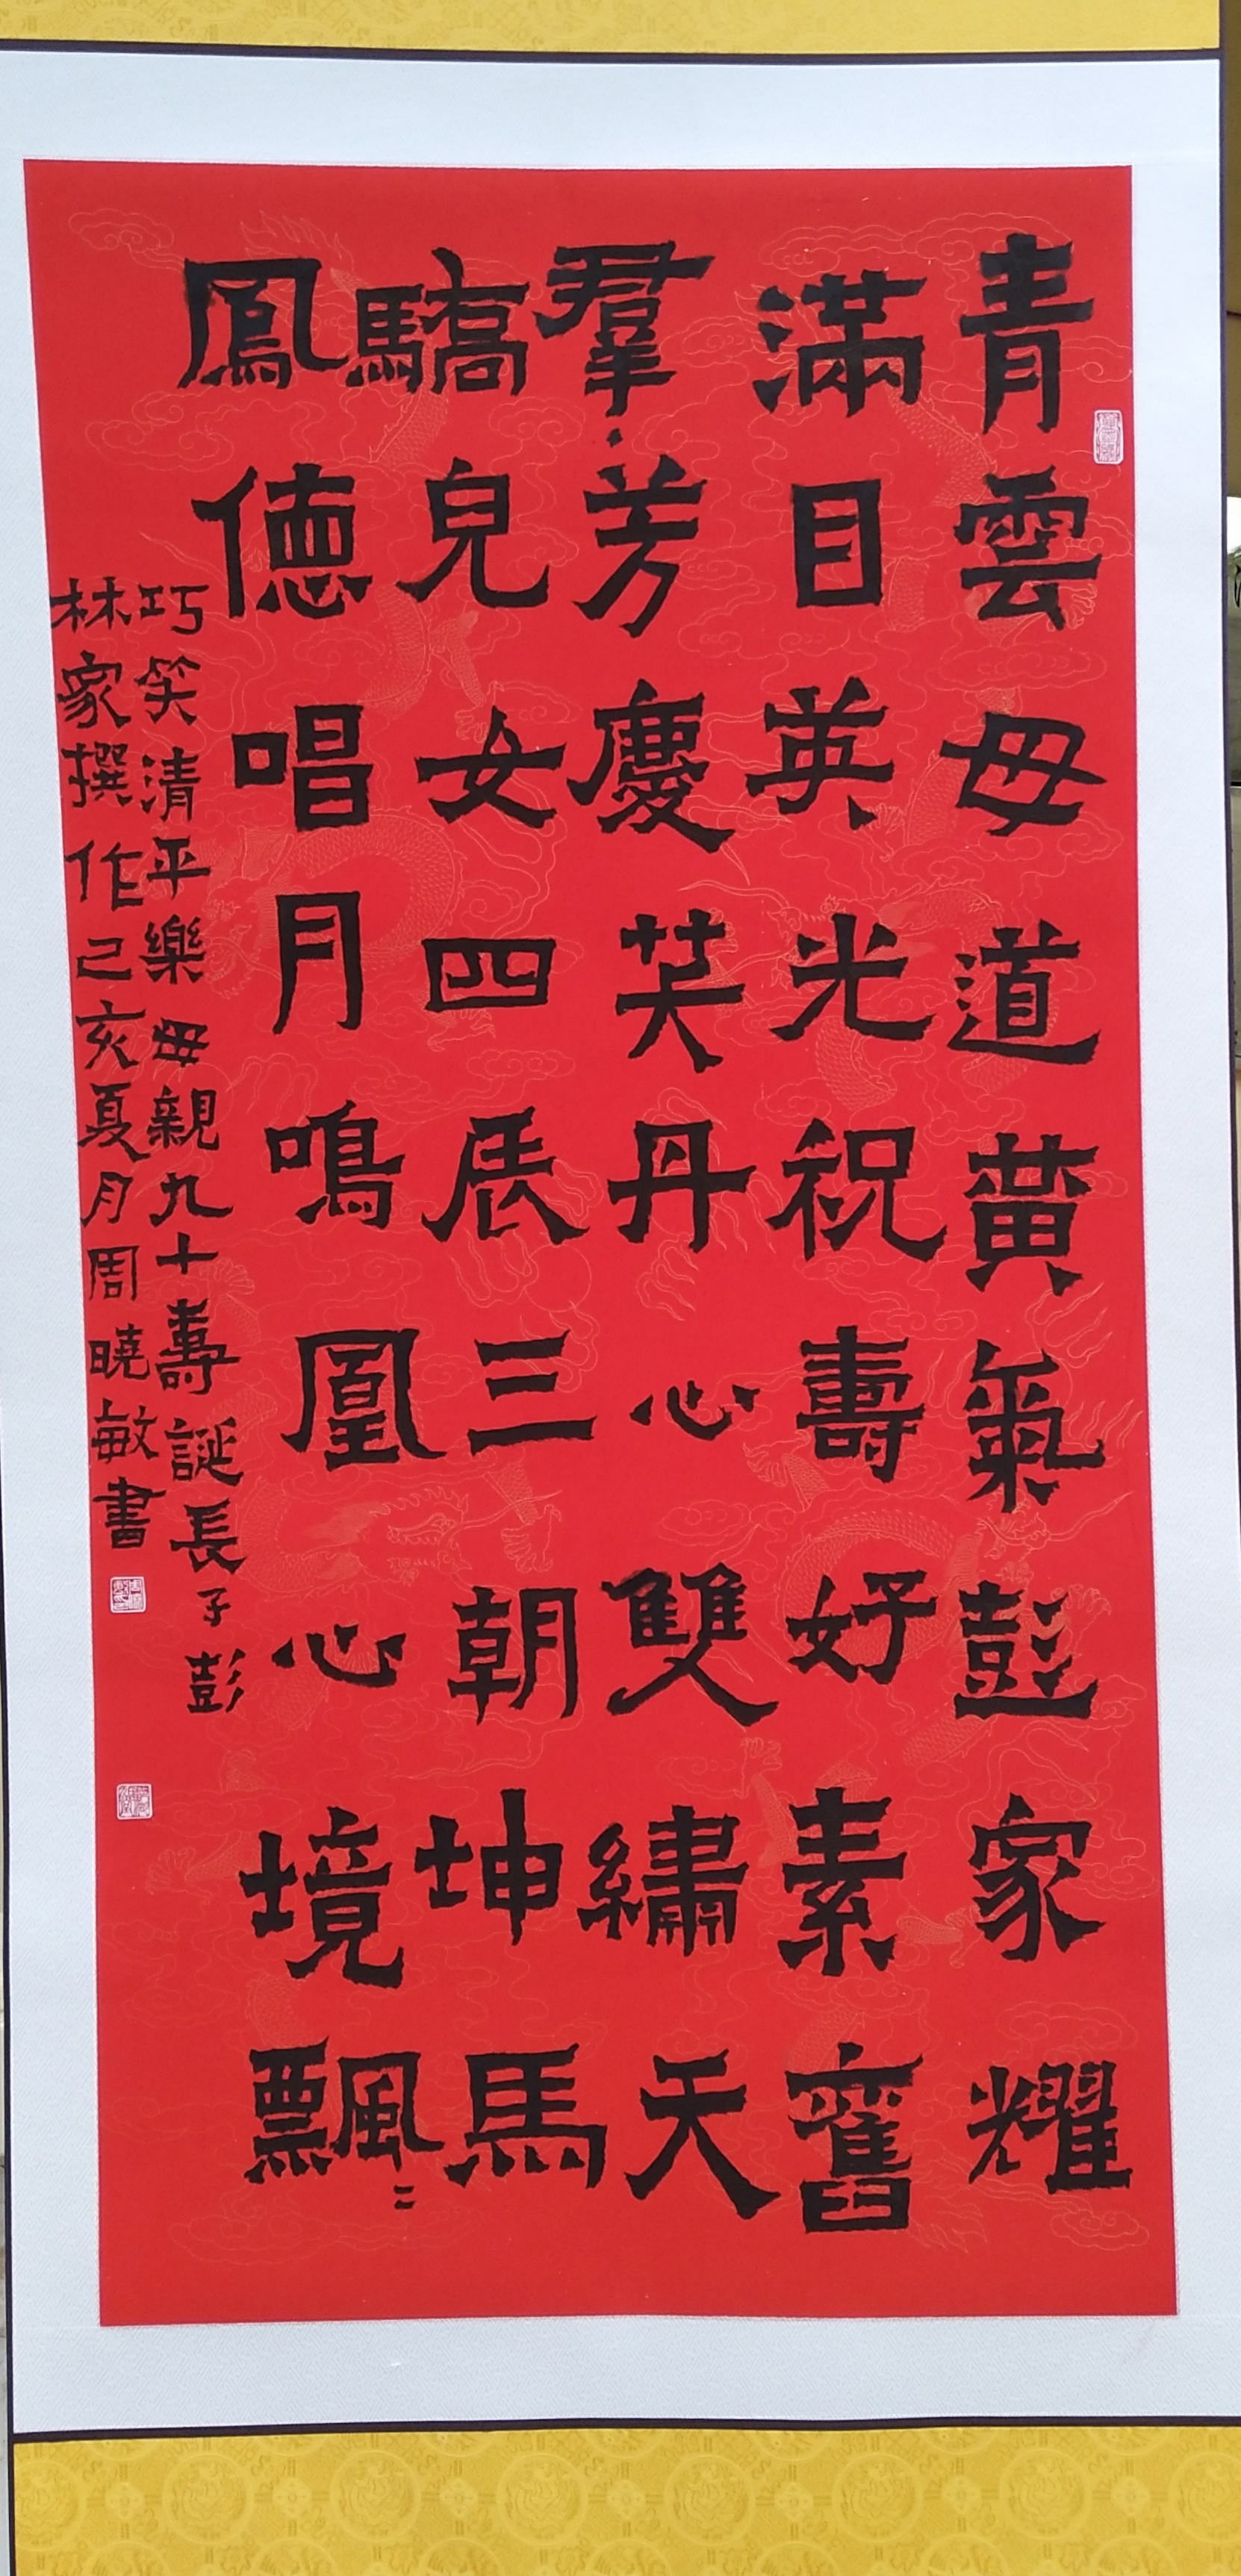 青雲母道黄氣彭家耀
滿目英光祝壽好素舊
羣芳慶笑丹心雙繡天
驕兒女四辰三朝坤馬
鳳德唱月鳴凰心境飄〻
巧笑清平樂母親九十壽誕長子彭
林家撰作己亥夏月周曉敏書